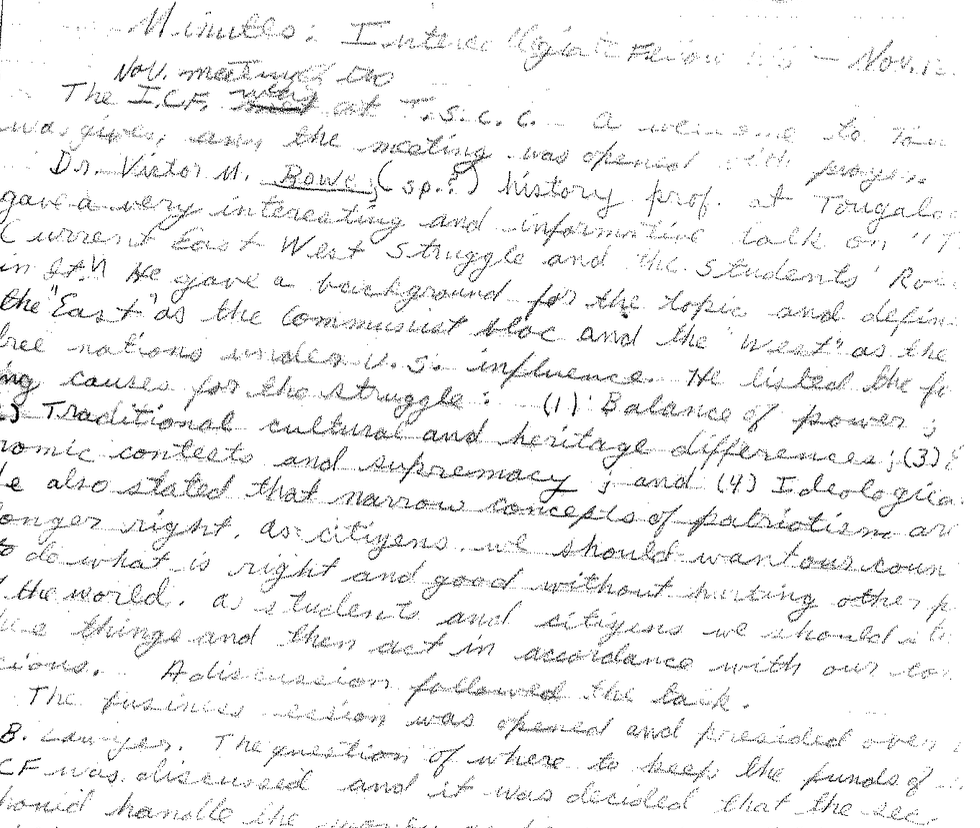 Minutes: Intercollegiate Fellowship - Nov. 12
Nov. meeting
The I.C.F. was at T.S.C.C. - A welcome to Tou
was given, and the meeting was opened with prayer.
Dr. Victor M. Rowe, (sp.?) history prof. at Tougaloo
gave a very interesting and informative talk on "T
Current East West Struggle and the Students' Role
in It." He gave a background for the topic and defin
the "East" as the Communist bloc and the "West" as the
free nations under U.S. influence. He listed the fo
ng causes for the struggle: (1) Balance of power;
) Traditional cultural and heritage differences; (3) E
nomic contests and supremacy; and (4) Ideological
He also stated that narrow concepts of patriotism are
longer right. As citizens we should want our coun
to do what is right and good without hurting other p
the world. As students and citizens we should
things and then act in accordance with our con
cions. A discussion followed the talk.
The business session was opened and presided over
B. Lawyer. The question of where to keep the funds of
CF was discussed and it was decided that the sec.
should handle the money